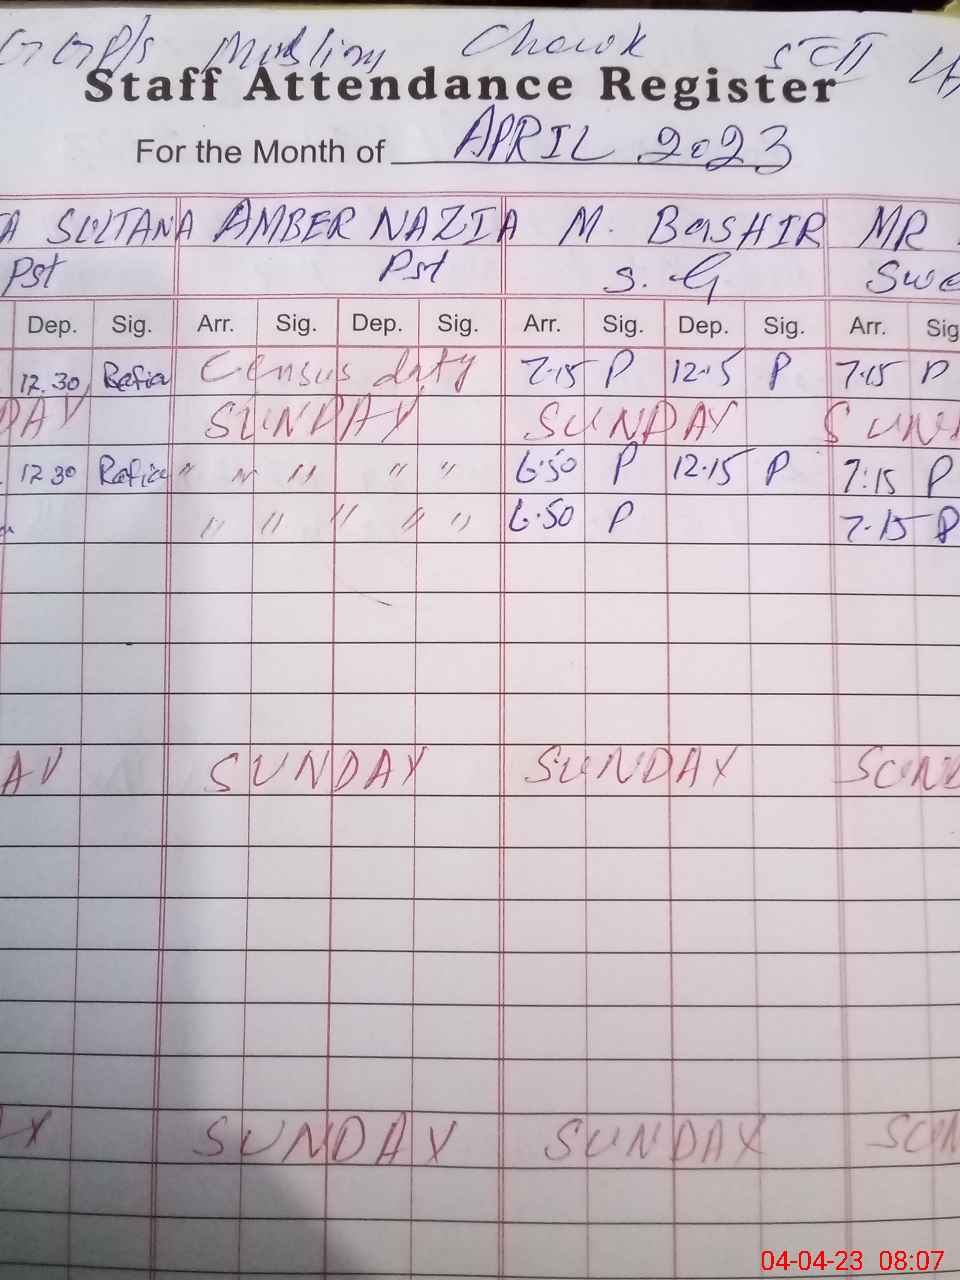 GGP/s Muslim Chowk
Staff Attendance Register
For the Month of APRIL 2023
A SULTANA AMBER NAZIA M. BASHIR MR
Pst Pst S. G Swe
Dep. Sig. Arr. Sig. Dep. Sig. Arr. Sig. Dep. Sig. Arr. Sig
12.30 Rafia Census duty 7.15 P 12.15 P 7.15 P
DAY SUNDAY SUNDAY SUN
12 30 Rafia " " " " " 6.50 P 12.15 P 7:15 P
" " " " " 6.50 P 7.15 P
AY SUNDAY SUNDAY SUND
AY SUNDAY SUNDAY SUN
04-04-23 08:07